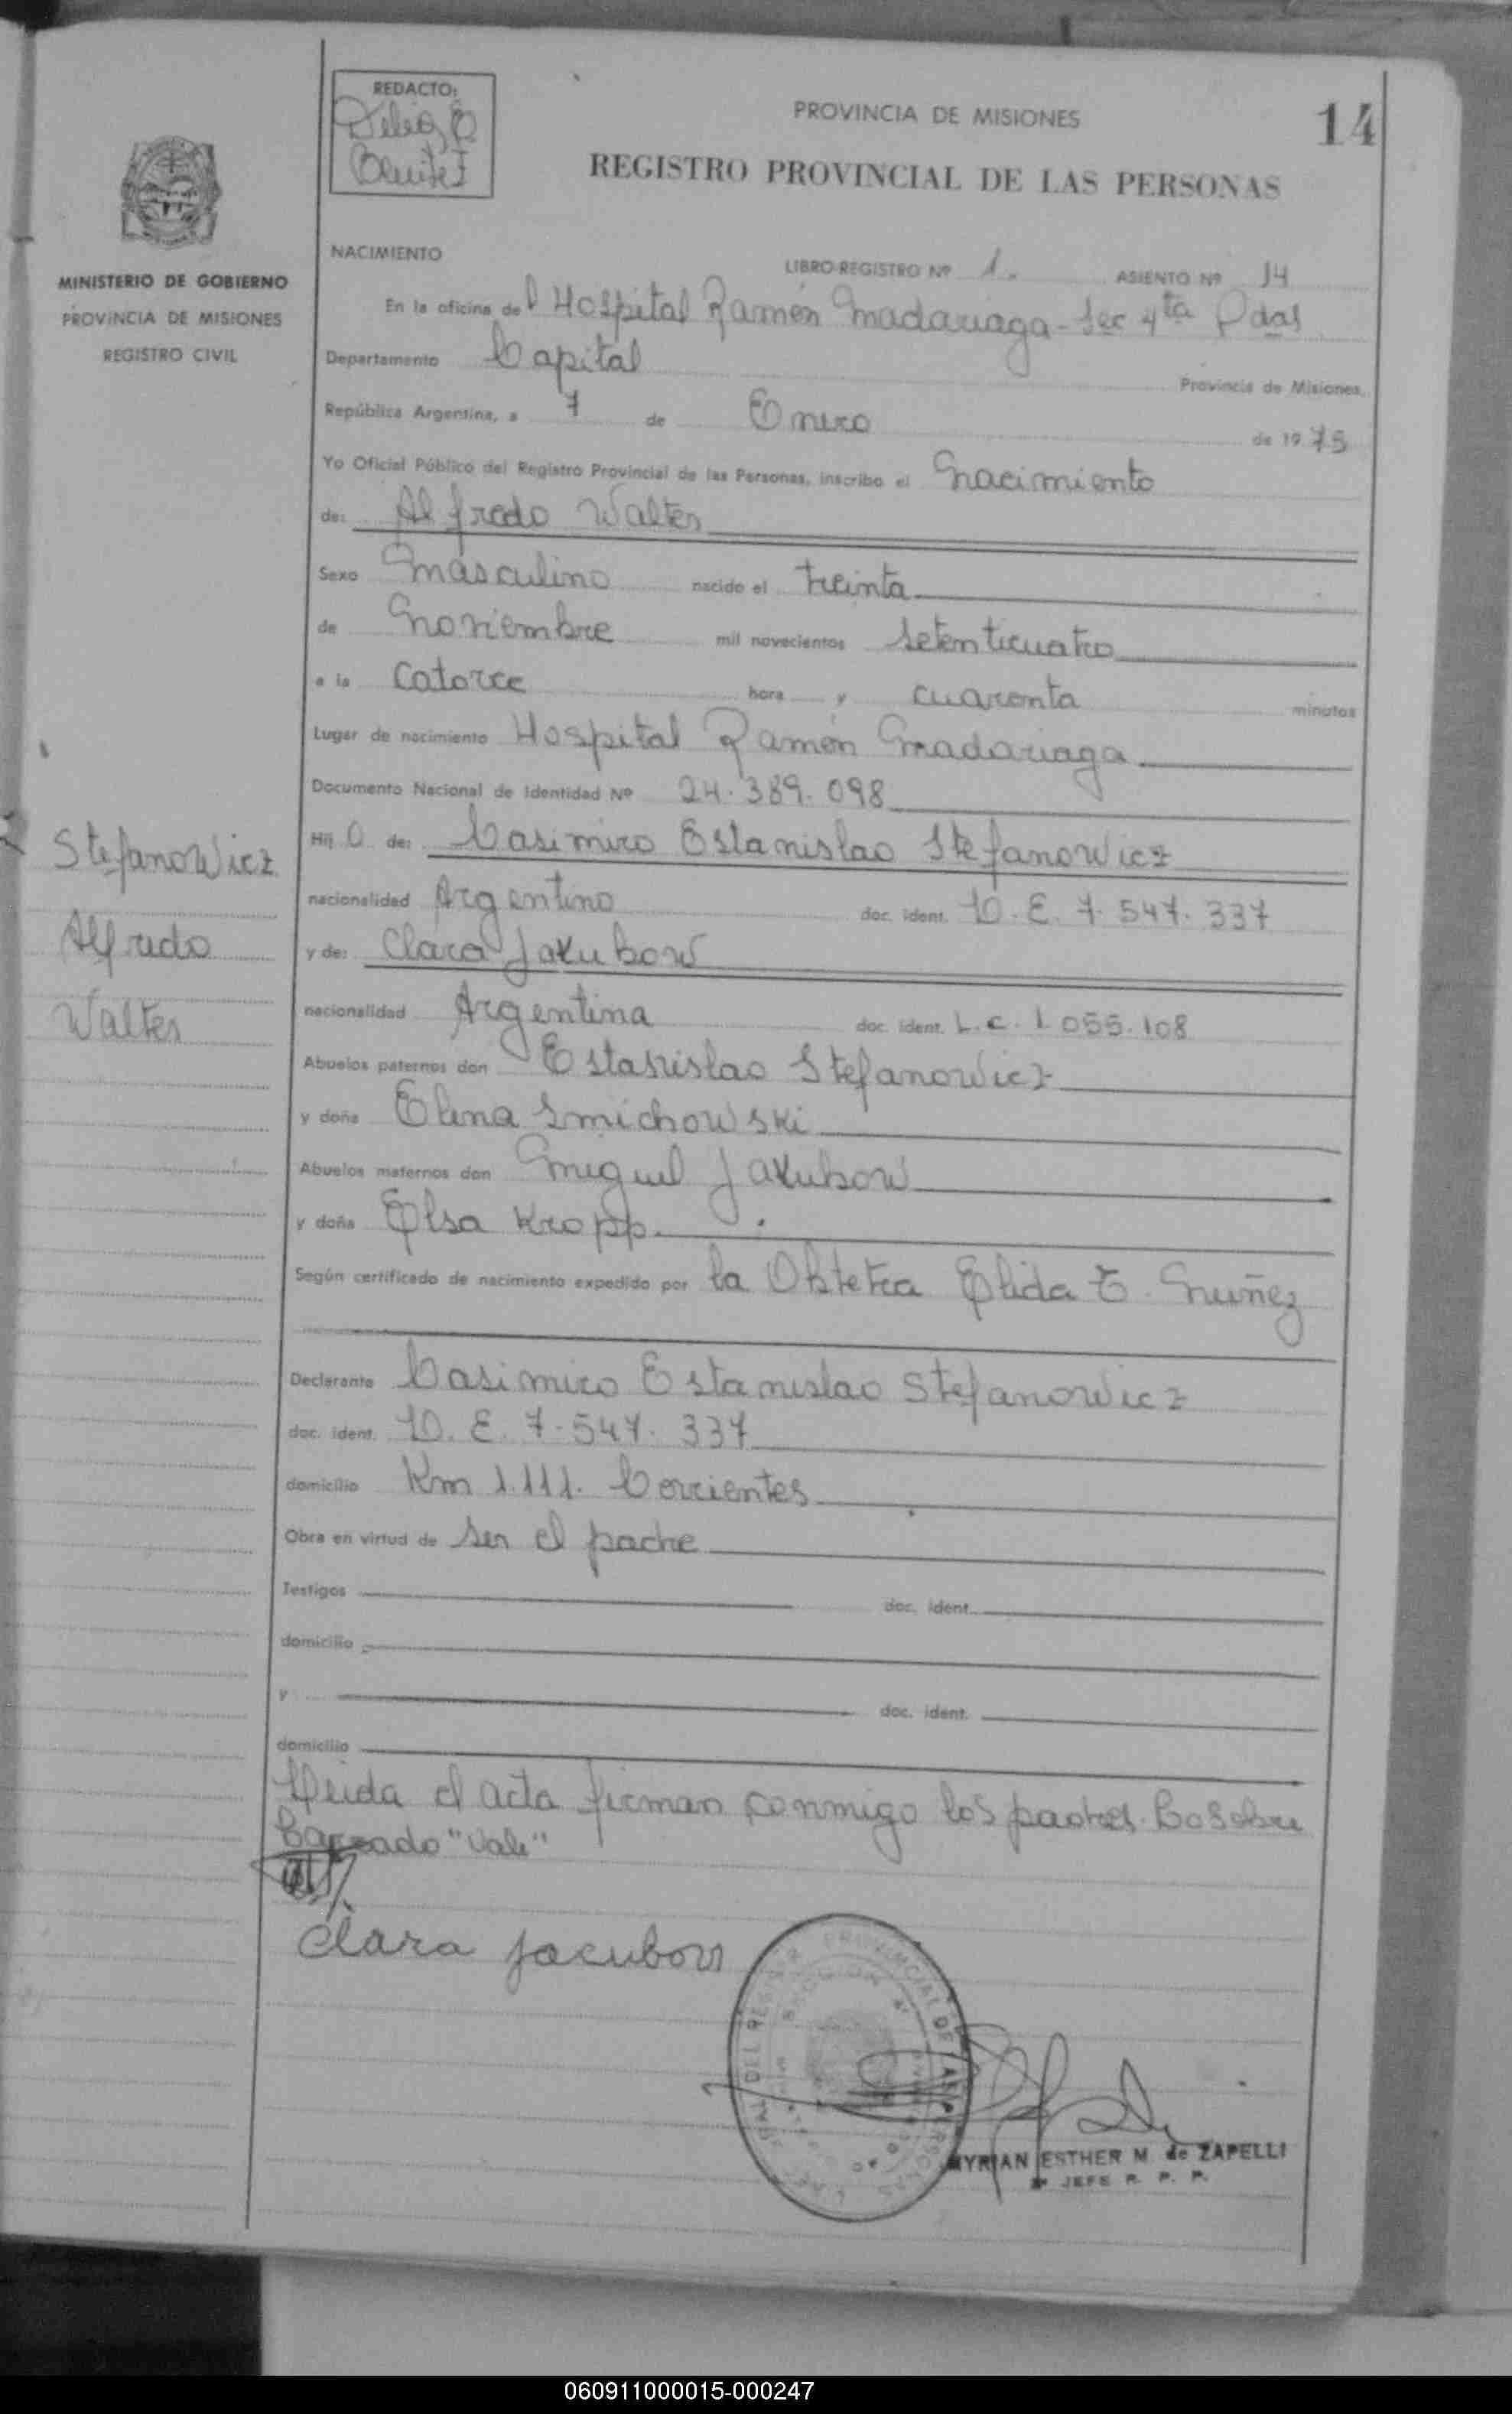 REDACTO:
Delia E
Benitez
PROVINCIA DE MISIONES
14
REGISTRO PROVINCIAL DE LAS PERSONAS
MINISTERIO DE GOBIERNO
PROVINCIA DE MISIONES
REGISTRO CIVIL
NACIMIENTO
LIBRO-REGISTRO Nº 1. ASIENTO Nº 14
En la oficina del Hospital Ramón Madariaga - Sec 4ta Pdas
Departamento Capital Provincia de Misiones,
República Argentina, a 7 de Enero de 1975
Yo Oficial Público del Registro Provincial de las Personas, inscribo el Nacimiento
de: Alfredo Walter
Sexo Masculino nacido el treinta
de Noviembre mil novecientos setenticuatro
a la Catorce hora y cuarenta minutos
Lugar de nacimiento Hospital Ramón Madariaga
Documento Nacional de Identidad Nº 24.389.098
Hij O de: Casimiro Estanislao Stefanowicz
nacionalidad Argentino doc. ident. D.E. 7.547.337
y de: Clara Jakubow
nacionalidad Argentina doc. ident. L.C. 1.055.108
Abuelos paternos don Estanislao Stefanowicz
y doña Elena Smichowski
Abuelos maternos don Miguel Jakubow
y doña Elsa Kropp.
Según certificado de nacimiento expedido por la Obstetra Elida E. Nuñez
Declarante Casimiro Estanislao Stefanowicz
doc. ident. D.E. 7.547.337
domicilio Km 1.111. Corrientes
Obra en virtud de ser el padre
Testigos doc. ident.
domicilio
y doc. ident.
domicilio
Leida el acta firman conmigo los padres. Co sobre
Borrado "Vale"
Clara Jacubow
Stefanowicz
Alfredo
Walter
PROVINCIAL DE LAS PERSONAS
MYRIAN ESTHER M. de ZAPELLI
JEFE R. P. P.
060911000015-000247